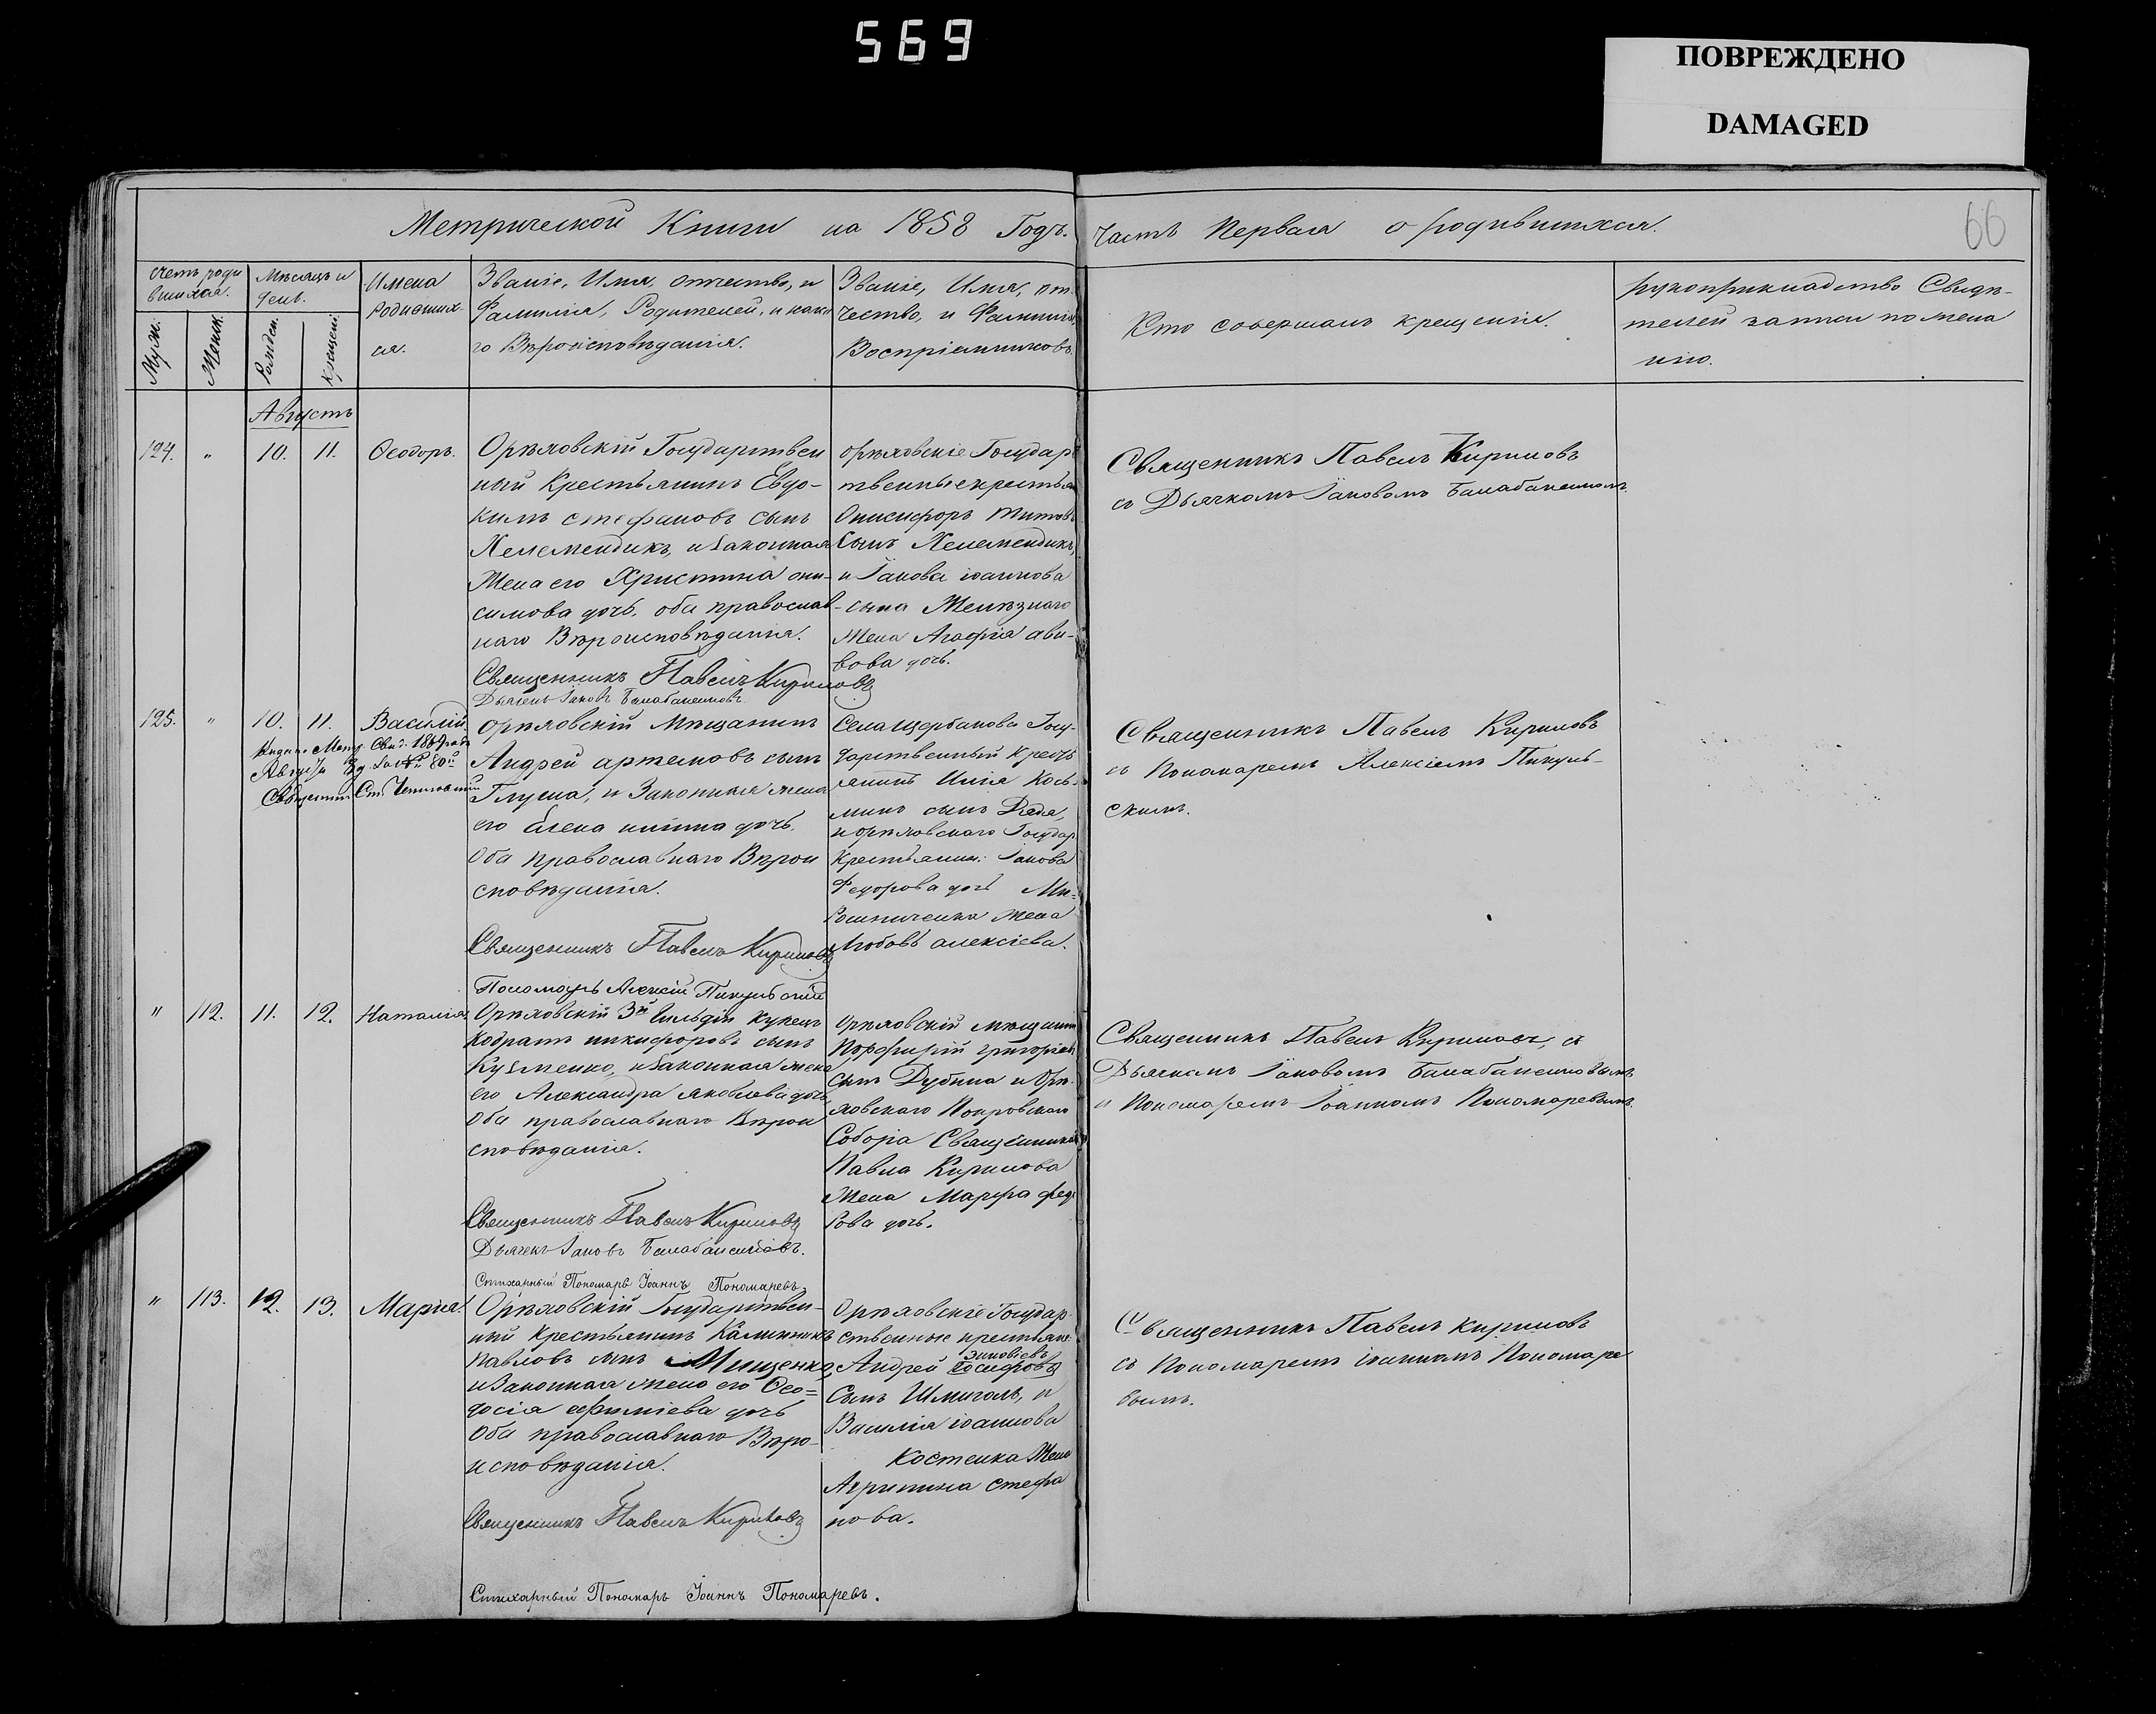 569
ПОВРЕЖДЕНО
DAMAGED
66
Метрической Книги на 1858 Годъ. часть Первая о родившихся.
счетъ роди
вшихся.
Муж.
Женск.
Мѣсяцъ и
день.
Рожден.
Крещені.
Имена
родивших
ся.
Званіе, Имя, отчество, и
Фамилія, Родителей, и како
го Вѣроисповѣданія.
Званіе, Имя, от
чество, и Фамилія
Воспріемниковъ.
Кто совершалъ крещенія.
рукоприкладство Свидѣ-
телей записи по жела
нію.
Августъ
124. " 10. 11. Ѳеодоръ.
Орѣховскій Государствен
ный Крестьянинъ Евдо-
кимъ стефановъ сынъ
Келемендикъ, и Законная
Жена его Христина они-
симова дочь. оба православ-
наго Вѣроисповѣданія.
Священникъ Павелъ Кириловъ
Дьячекъ Іаковъ Балабаненковъ
орѣховскіе Государ
твенные крестьян
Онисифоръ титовъ
Сынъ Келемендикъ,
и Іакова іоаннова
сына Желѣзнаго
Жена Агафія ави-
вова дочь.
Священникъ Павелъ Кириловъ
съ Дьячкомъ Іаковомъ Балабаненкомъ.
125. " 10. 11. Василій.
орѣховскій Мѣщанинъ
Андрей артемовъ сынъ
Глуска, и Законная жена
его Елена илiина дочь.
Оба православнаго Вѣрои
сповѣданія.
Священникъ Павелъ Кириловъ
Пономарь Алексій Пикульскій
Села Щербаковъ Госу-
дарственный Кресть
янинъ Илія Кось-
минъ сынъ Дядя,
и орѣховскаго Государ
Крестьянин: Іакова
Федорова дочь Ми-
рошниченка жена
Любовь алексіева.
Священникъ Павелъ Кириловъ
съ Пономаремъ Алексіемъ Пикуль-
скимъ.
" 112. 11. 12. Наталія.
Орѣховскій 3й Гильдіи купецъ
Кодратъ никифоровъ сынъ
Кузменко, и Законная жена
его Александра яковлева дочь
Оба православнаго Вѣрои
сповѣданія.
Священникъ Павелъ Кириловъ
Дьячекъ Іаковъ Балабаненковъ.
Стихарный Пономарь Іоаннъ Пономаревъ
орѣховскій мѣщанин
Порфирій григоріевъ
сынъ Дубина и Орѣ-
ховскаго Покровскаго
Собора Священника
Павла Кирилова
Жена Марфа федо
рова дочь.
Священникъ Павелъ Кириловъ, съ
Дьячкомъ Іаковомъ Балабаненковымъ
и Пономаремъ Іоанномъ Пономаревымъ.
" 113. 12. 13. Марія.
Орѣховскій Государствен-
ный Крестьянинъ Калинникъ
Павловъ сынъ Мищенко,
и Законная жена его Ѳео=
досія ефиміева дочь
Оба православнаго Вѣро-
исповѣданія.
Священникъ Павелъ Кириловъ
Стихарный Пономарь Іоаннъ Пономаревъ.
Орѣховскіе Государ-
ственные крестьяне:
зиновіевъ
Андрей
Сынъ Шмиголь, и
Василія іоаннова
Костенка Жена
Агрипина стефа
нова.
Священникъ Павелъ Кириловъ
съ Пономаремъ іоанномъ Пономаре
вымъ.